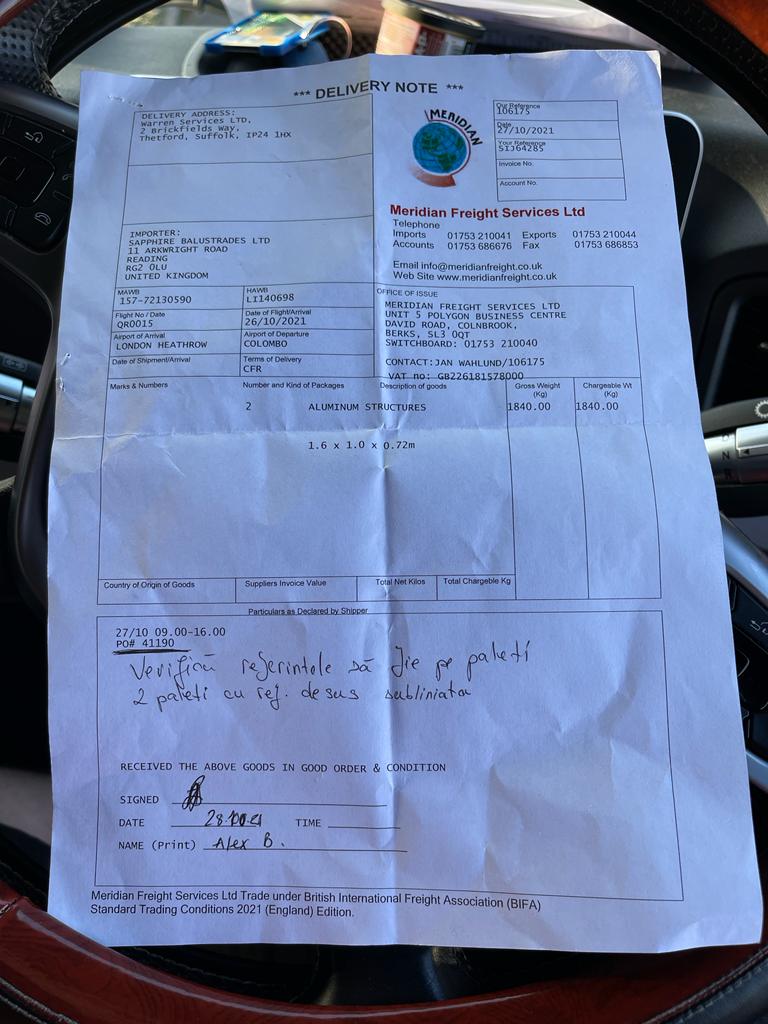 *** DELIVERY NOTE ***
DELIVERY ADDRESS:
Warren Services LTD,
2 Brickfields Way,
Thetford, Suffolk, IP24 1HX
MERIDIAN
Our Reference
106175
Date
27/10/2021
Your Reference
SIJ64285
Invoice No.
Account No.
Meridian Freight Services Ltd
Telephone
Imports 01753 210041 Exports 01753 210044
Accounts 01753 686676 Fax 01753 686853
Email info@meridianfreight.co.uk
Web Site www.meridianfreight.co.uk
IMPORTER:
SAPPHIRE BALUSTRADES LTD
11 ARKWRIGHT ROAD
READING
RG2 0LU
UNITED KINGDOM
MAWB
157-72130590
HAWB
LI140698
Flight No / Date
QR0015
Date of Flight/Arrival
26/10/2021
Airport of Arrival
LONDON HEATHROW
Airport of Departure
COLOMBO
Date of Shipment/Arrival
Terms of Delivery
CFR
OFFICE OF ISSUE
MERIDIAN FREIGHT SERVICES LTD
UNIT 5 POLYGON BUSINESS CENTRE
DAVID ROAD, COLNBROOK,
BERKS, SL3 0QT
SWITCHBOARD: 01753 210040
CONTACT:JAN WAHLUND/106175
VAT no: GB226181578000
Marks & Numbers Number and Kind of Packages Description of goods Gross Weight (Kg) Chargeable Wt (Kg)
2 ALUMINUM STRUCTURES 1840.00 1840.00
1.6 x 1.0 x 0.72m
Country of Origin of Goods Suppliers Invoice Value Total Net Kilos Total Chargeable Kg
Particulars as Declared by Shipper
27/10 09.00-16.00
PO# 41190
Verifică referintele să fie pe paleți
2 paleți cu ref. de sus subliniata
RECEIVED THE ABOVE GOODS IN GOOD ORDER & CONDITION
SIGNED
DATE TIME
NAME (Print) Alex B.
Meridian Freight Services Ltd Trade under British International Freight Association (BIFA)
Standard Trading Conditions 2021 (England) Edition.